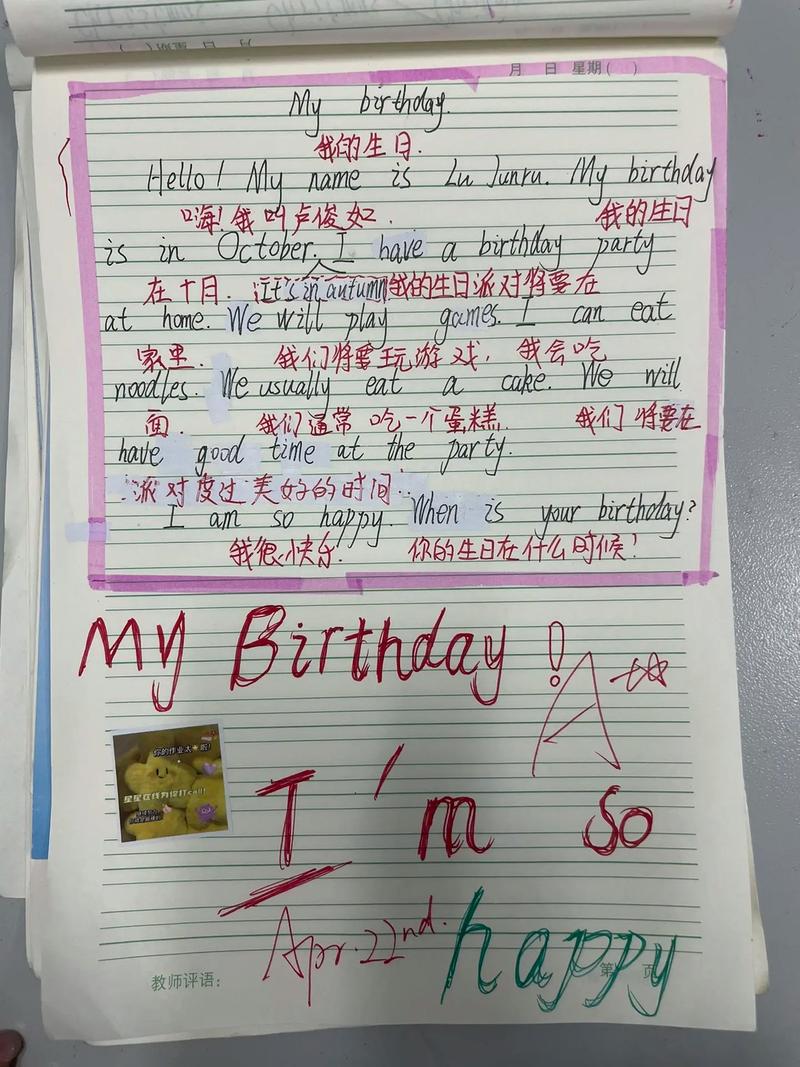 月 日 星期( )
My birthday.
我的生日.
Hello! My name is Lu Junru. My birthday
嗨!我叫卢俊如. 我的生日
is in October. I have a birthday party
在十月. It's in autumn 我的生日派对将要在
at home. We will play games. I can eat
家里. 我们将要玩游戏, 我会吃
noodles. We usually eat a cake. We will
面. 我们通常吃一个蛋糕. 我们将要在
have good time at the party.
派对度过美好的时间.
I am so happy. When is your birthday?
我很快乐! 你的生日在什么时候?
My Birthday!
A+☆
你的作业太★啦!
星星在线为你打call!
I'm so
Apr. 22nd.
happy
教师评语: 第 页